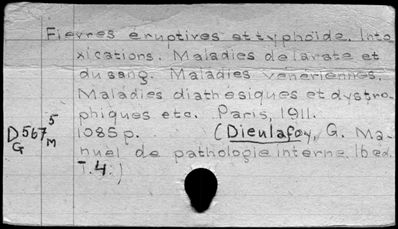 Fievres éruptives et typhoïde. Into
xications. Maladies de larate et
du sang. Maladies vénériennes.
Maladies diathésiques et dystro
phiques etc. Paris, 1911.
D567 5 1085p. (Dieulafoy, G. Ma-
G M nuel de pathologie interne. 16 ed.
T.4.)